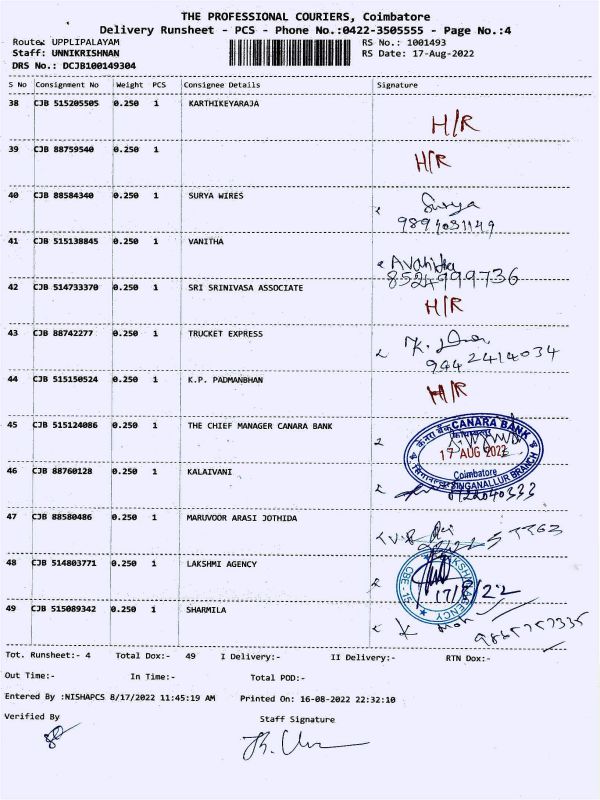 THE PROFESSIONAL COURIERS, Coimbatore
Delivery Runsheet - PCS - Phone No.:0422-3505555 - Page No.:4
Route: UPPLIPALAYAM RS No.: 1001493
Staff: UNNIKRISHNAN RS Date: 17-Aug-2022
DRS No.: DCJB100149304
S No Consignment No Weight PCS Consignee Details Signature
38 CJB 515205505 0.250 1 KARTHIKEYARAJA H/R
39 CJB 88759540 0.250 1 H/R
40 CJB 88584340 0.250 1 SURYA WIRES Surya
9894031149
41 CJB 515138845 0.250 1 VANITHA
8524999736
42 CJB 514733370 0.250 1 SRI SRINIVASA ASSOCIATE H/R
43 CJB 88742277 0.250 1 TRUCKET EXPRESS
9442414034
44 CJB 515150524 0.250 1 K.P. PADMANBHAN H/R
45 CJB 515124086 0.250 1 THE CHIEF MANAGER CANARA BANK CANARA BANK
17 AUG 2022
Coimbatore
SINGANALLUR BRANCH
46 CJB 88760128 0.250 1 KALAIVANI
47 CJB 88580486 0.250 1 MARUVOOR ARASI JOTHIDA
48 CJB 514803771 0.250 1 LAKSHMI AGENCY LAKSHMI AGENCY
CBE - 15
49 CJB 515089342 0.250 1 SHARMILA
Tot. Runsheet:- 4 Total Dox:- 49 I Delivery:- II Delivery:- RTN Dox:-
Out Time:- In Time:- Total POD:-
Entered By :NISHAPCS 8/17/2022 11:45:19 AM Printed On: 16-08-2022 22:32:10
Verified By Staff Signature